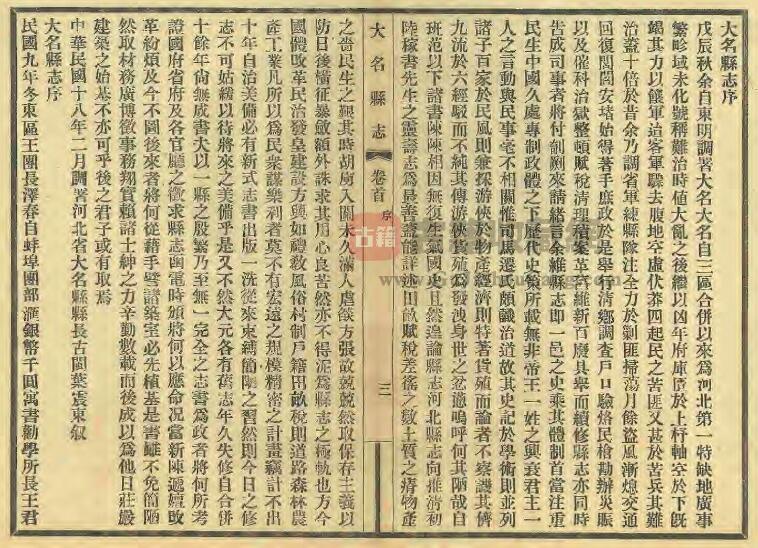 大名縣志序
戊辰秋余自東明調署大名大名自三區合併以來爲河北第一特缺地廣事
繁畛域未化號稱難治時值大亂之後繼以凶年府庫匱於上杼軸空於下旣
竭其力以饟軍迨客軍驟去腹地空虛伏莽四起民之苦匪又甚於苦兵其難
治蓋十倍於昔余乃調省軍練縣隊注全力於剿匪掃蕩月餘盜風漸熄交通
回復閭閻安堵始得著手庶政於是舉行清鄉調查戶口驗烙民槍勘辦災賑
以及催科治獄整頓賦稅清理積案革舊維新百廢具舉而續修縣志亦同時
告成司事者將付剞劂來請緒言余維縣志即一邑之史乘其體制首當注重
民生中國久處專制政體之下歷代史策所載無非帝王一姓之興衰君主一
人之言動與民事毫不相關惟司馬遷氏頗饒治道故其史記於學術則並列
諸子百家於民風則兼採游俠於物產經濟則特著貨殖而論者不察譏其儕
九流於六經駁而不純其傳游俠貨殖爲發洩身世之忿憾嗚呼何其陋哉自
班范以下諸書陳陳相因無復生氣國史且然遑論縣志河北縣志向推清初
陸稼書先生之靈壽志爲最善蓋能詳述田畝賦稅差徭之數土質之瘠物產
大名縣志 卷首 序 三
之嗇民生之艱其時胡虜入關未久滿人虐燄方張故兢兢然取保存主義以
防日後橫征暴斂額外誅求其用心良苦然亦不得泥爲縣志之極軌也方今
國體改革民治發皇建設方興如禮敎風俗村制戶籍田畝稅則道路森林農
產工業凡所以爲民衆謀樂利者莫不有宏遠之規模精密之計畫竊計不出
十年自治美備必有新式志書出版一洗從來束縛簡陋之習然則今日之修
志不可姑緩以待將來之美備乎是又不然大元各有舊志年久失修自合併
十餘年尙無成書夫以一縣之殷繁乃至無一完全之志書爲政者將何所考
證國府省府及各官廳之徵求縣志函電時頒將何以應命况當新陳遞嬗改
革紛煩及今不圖後來者將何從藉手譬諸築室必先植基是書雖不免簡陋
然取材務廣博徵事務翔實賴諸士紳之力辛勤數載而後成以爲他日莊嚴
建築之始基不亦可乎後之君子或有取焉
中華民國十八年二月調署河北省大名縣縣長古閩葉震東叙
大名縣志序
民國九年冬東區王團長澤春自蚌埠團部滙銀幣千圓寓書勸學所長王君
古籍